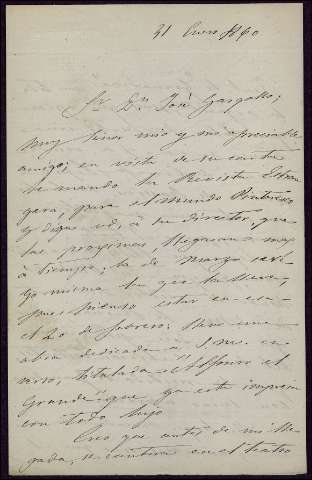 31 Enero 1860
Sr. Dn. José Gargollo;
Muy Señor mio y mi apreciable
amigo; en vista de su carta
le mando la Revista Estran
gera, para el mundo Pintoresco
y diga vd. á su director, que
las proximas llegaran a mas
á tiempo; la de Marzo seré
yo misma la que la lleve,
pues pienso estar en esa
el 20 de febrero: llevo una
obra dedicada á S.M. en
verso, titulada "Alfonso el
Grande" que ya está impresa
con todo lujo
Creo que antes de mi lle
gada, se cantará en el teatro